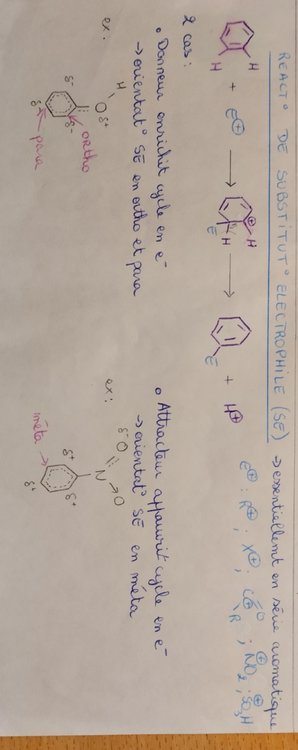 REACT° DE SUBSTITUT° ELECTROPHILE (SE) → essentiellemt en série aromatique
E⊕ : R⊕ ; X⊕ ; C⊕ O R ; NO2⊕ ; SO3H⊕
H H + E⊕ → ⊕ H H E → E + H⊕
2 cas :
• Donneur enrichit cycle en e-
→ orientat° SE en ortho et para
ex :
H O δ+
δ- δ- δ-
ortho
para
• Attracteur appauvrit cycle en e-
→ orientat° SE en méta
ex :
δ- O N → O
δ+ δ+ δ+
méta